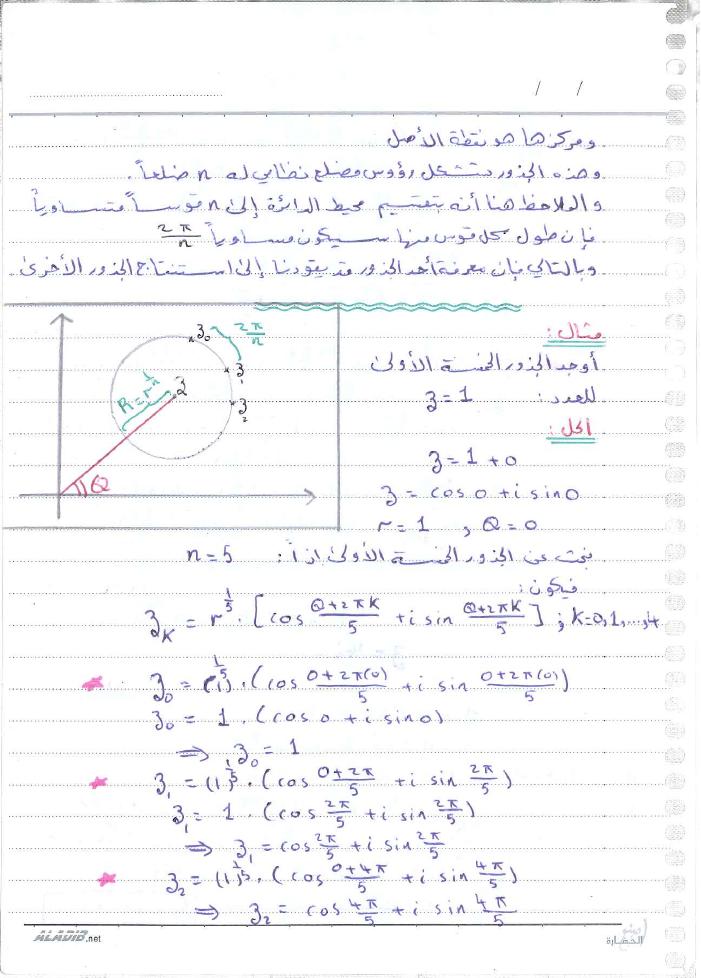 / /
ومركزها هو نقطة الأصل
وهذه الجذور تتشكل رؤوس مضلع نظامي له n ضلعاً.
والملاحظ هنا أنه بتقسيم محيط الدائرة إلى n قوساً متساوياً
فإن طول كل قوس منها سيكون مساوياً 2π/n
وبالتالي فإن معرفة أحد الجذور قد يقودنا إلى استنتاج الجذور الأخرى
مثال:
أوجد الجذور الخمسة الأولى
للعدد: z = 1
الحل:
z = 1 + 0
z = cos 0 + i sin 0
r = 1 , Q = 0
z₀
2π/n
z₁
z₂
z
R = r^(1/n)
Q
نبحث عن الجذور الخمسة الأولى إذاً: n = 5
فيكون:
z_K = r^(1/5) · [cos (Q+2πK)/5 + i sin (Q+2πK)/5] ; K=0,1,...,4
z₀ = (1)^(1/5) · (cos (0+2π(0))/5 + i sin (0+2π(0))/5)
z₀ = 1 · (cos 0 + i sin 0)
⇒ z₀ = 1
z₁ = (1)^(1/5) · (cos (0+2π)/5 + i sin 2π/5)
z₁ = 1 · (cos 2π/5 + i sin 2π/5)
⇒ z₁ = cos 2π/5 + i sin 2π/5
z₂ = (1)^(1/5) · (cos (0+4π)/5 + i sin 4π/5)
⇒ z₂ = cos 4π/5 + i sin 4π/5
ALADIB.net
الحضارة